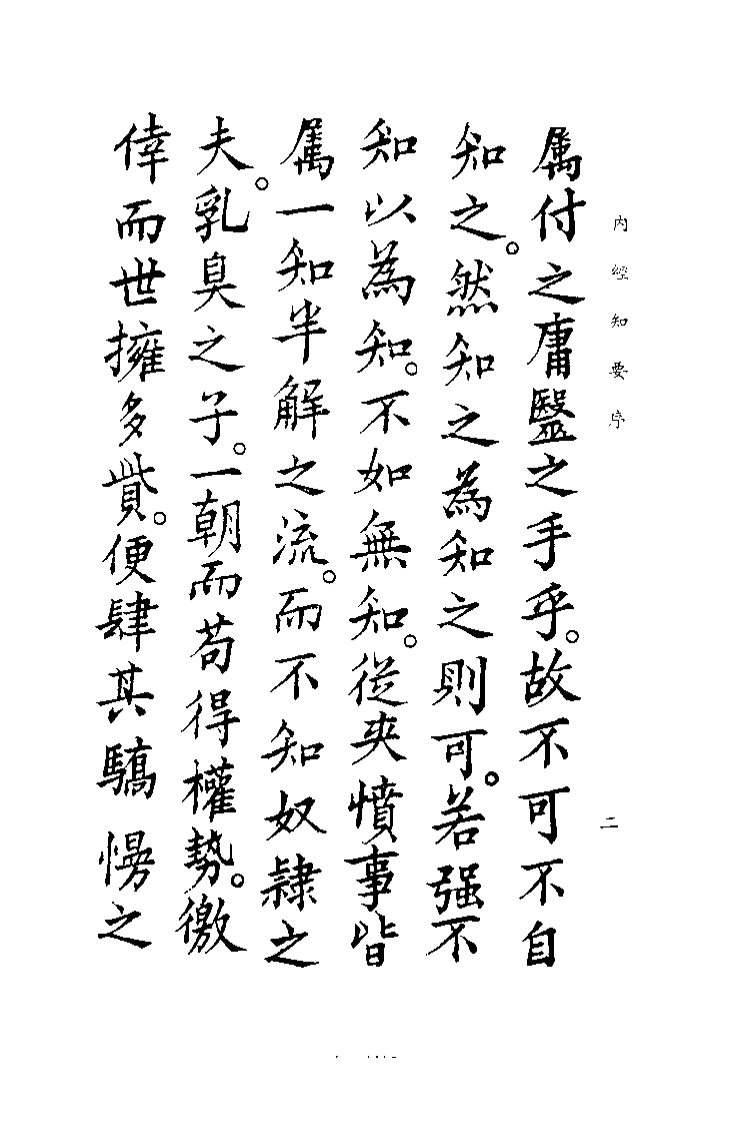 內經知要序
二
属付之庸毉之手乎。故不可不自
知之。然知之為知之則可。若强不
知以為知。不如無知。從來僨事皆
属一知半解之流。而不知奴隸之
夫。乳臭之子。一朝而苟得權勢。徼
倖而世擁多貲。便肆其驕慢之